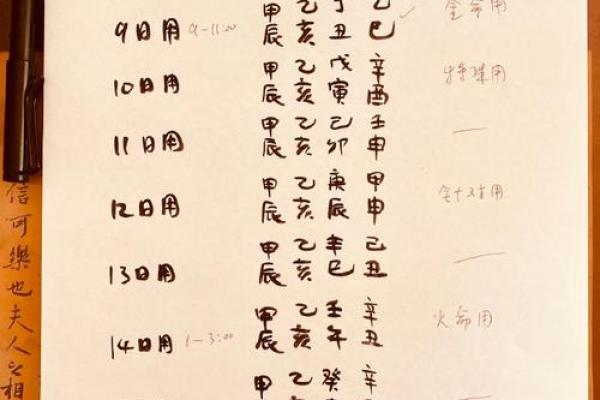 甲 乙 丁 乙
9日用 9-11:00 辰 亥 丑 巳 ✓ 金命用
甲 乙 戊 辛
10日用 辰 亥 寅 酉 特殊用
甲 乙 己 壬
11日用 辰 亥 卯 申 —
甲 乙 庚 甲
12日用 辰 亥 辰 申 针对用
甲 乙 辛 己
13日用 辰 亥 巳 丑 —
甲 乙 壬 辛
14日用 1-3:00 辰 亥 午 丑 火命用
甲 乙 癸 辛
信可樂也夫人之相